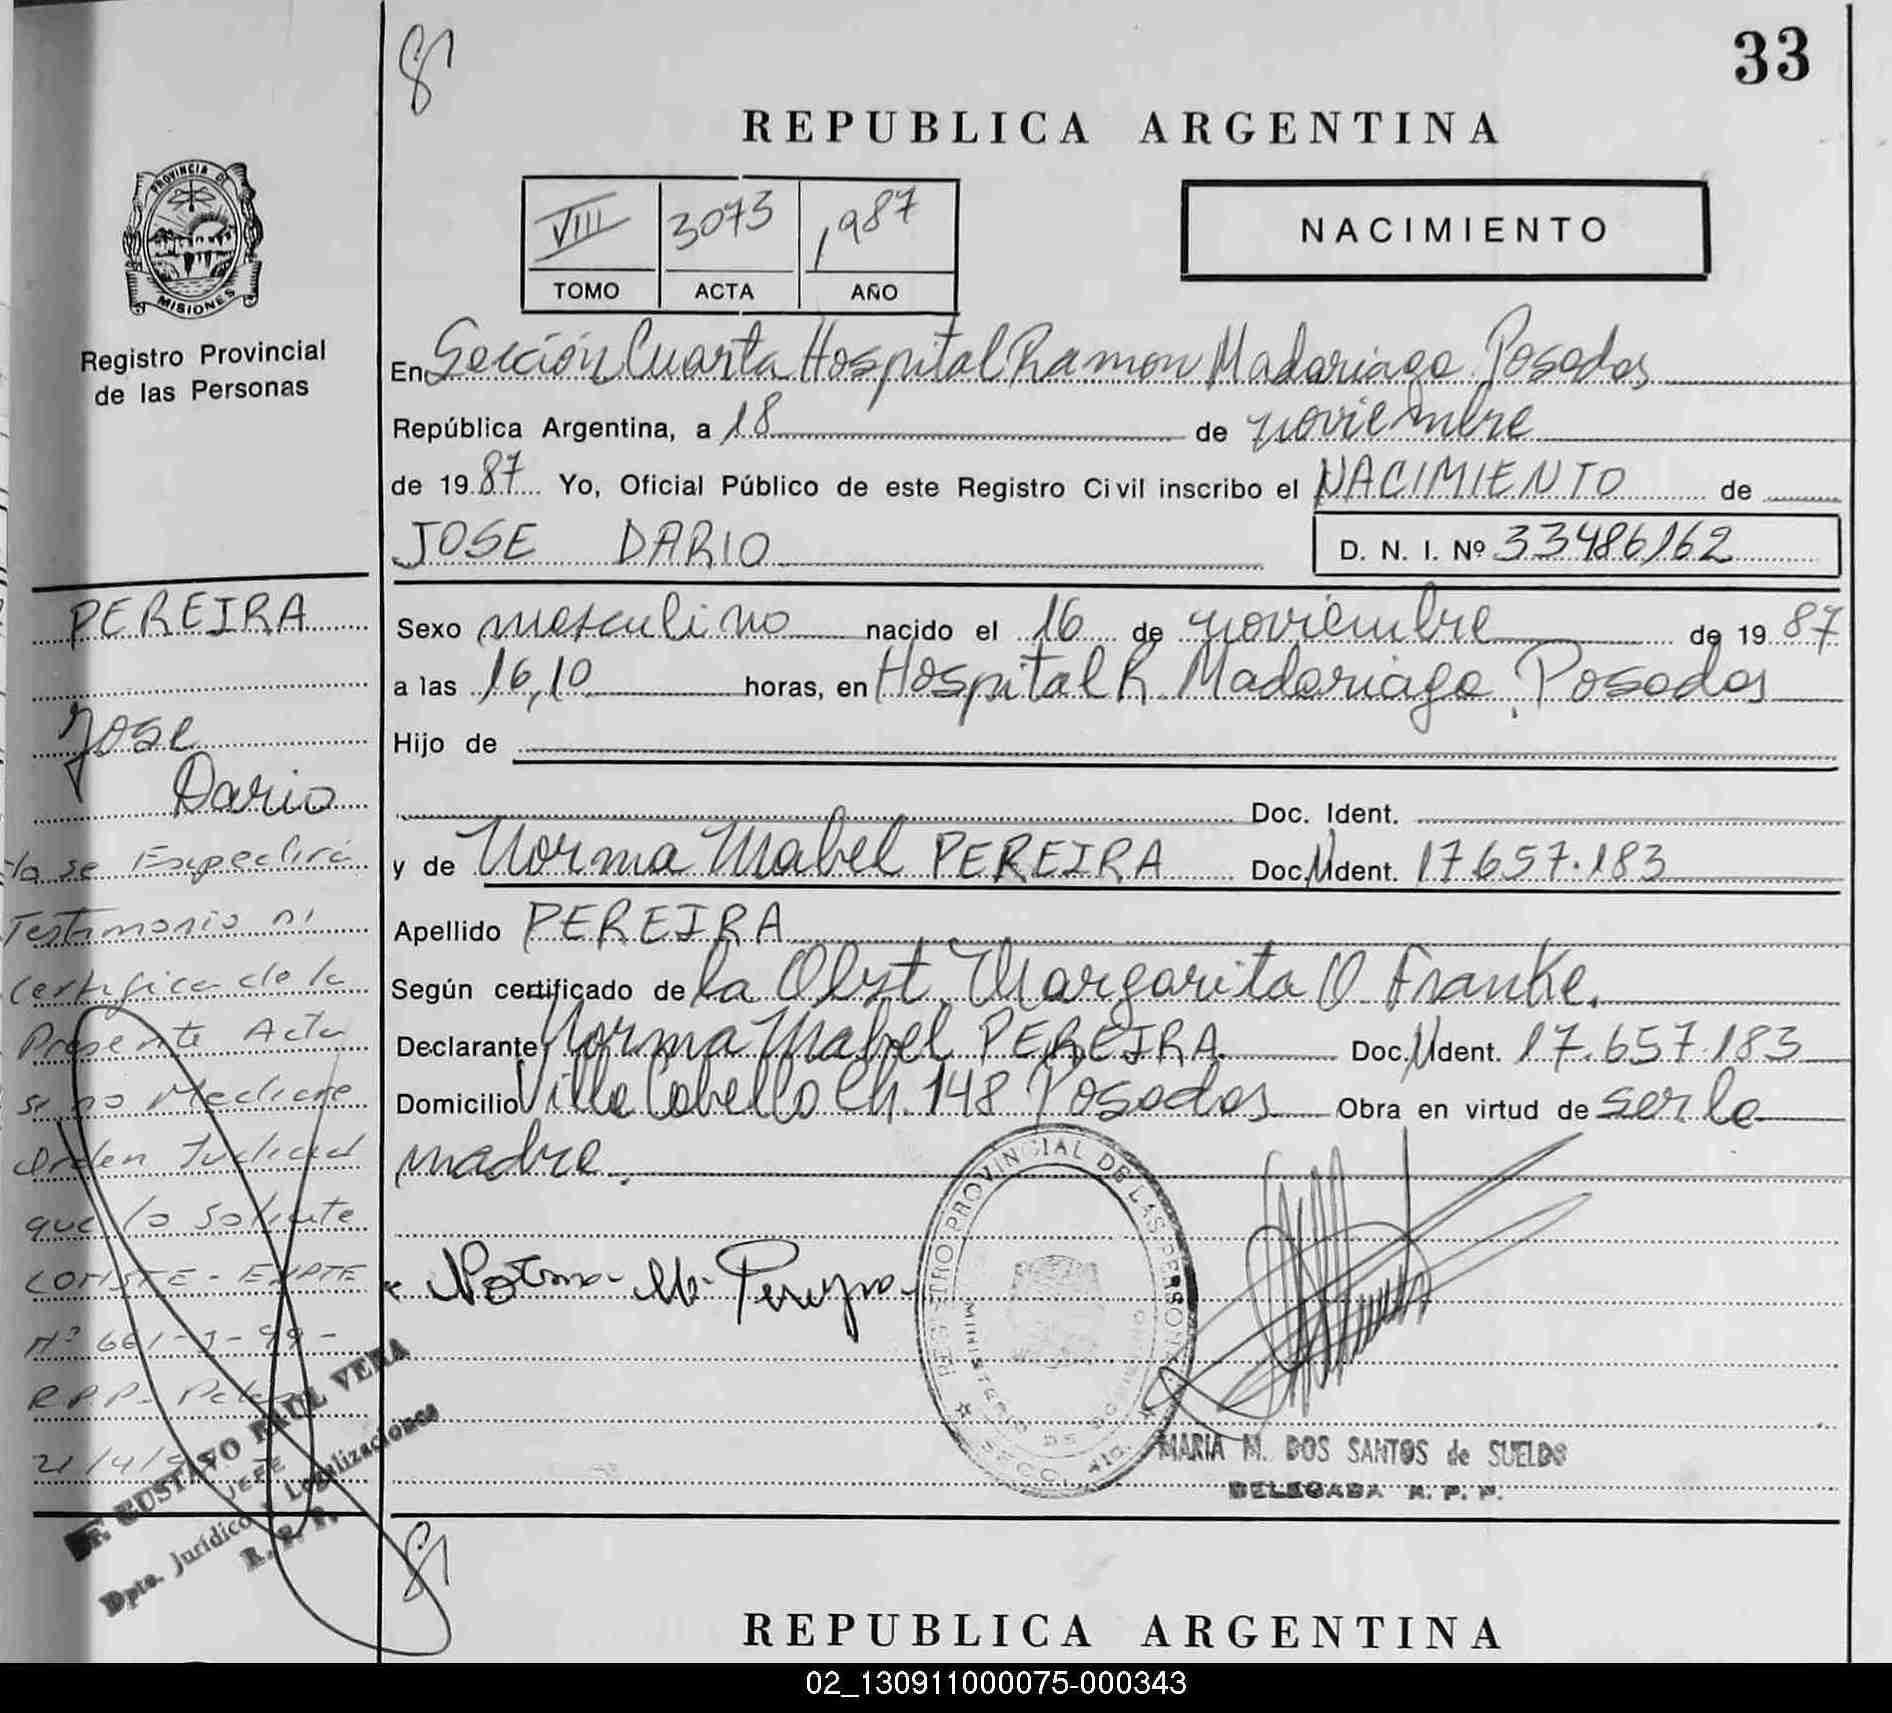 33
REPUBLICA ARGENTINA
PROVINCIA DE
MISIONES
Registro Provincial
de las Personas
VIII 3073 1987
TOMO ACTA AÑO
NACIMIENTO
En Sección Cuarta Hospital Ramon Madariaga Posadas
República Argentina, a 18 de noviembre
de 1987 Yo, Oficial Público de este Registro Civil inscribo el NACIMIENTO de
JOSE DARIO D. N. I. Nº 33486162
Sexo masculino nacido el 16 de noviembre de 1987
a las 16,10 horas, en Hospital R. Madariaga, Posadas
Hijo de
Doc. Ident.
y de Norma Mabel PEREIRA Doc. Ident. 17.657.183
Apellido PEREIRA
Según certificado de la Obst. Margarita O Franke.
Declarante Norma Mabel PEREIRA. Doc. Ident. 17.657.183
Domicilio Villa Cabello Ch. 148 Posadas Obra en virtud de ser la
madre.
Norma M. Pereyra
REGISTRO PROVINCIAL DE LAS PERSONAS
MINISTERIO DE GOBIERNO
MARIA M. DOS SANTOS de SUELDO
DELEGADA R. P. P.
PEREIRA
Jose
Dario
No se Expedirá
Testimonio ni
Certifica de la
Presente Acta
si no Mediare
Orden Judicial
que lo Solicite
CONSTE - EXPTE
Nº 661-J-99-
R.P.P-
21/4/
GUSTAVO RAUL VERA
JEFE
Dpto. Jurídico y Legalizaciones
R. P. P.
REPUBLICA ARGENTINA
02_130911000075-000343